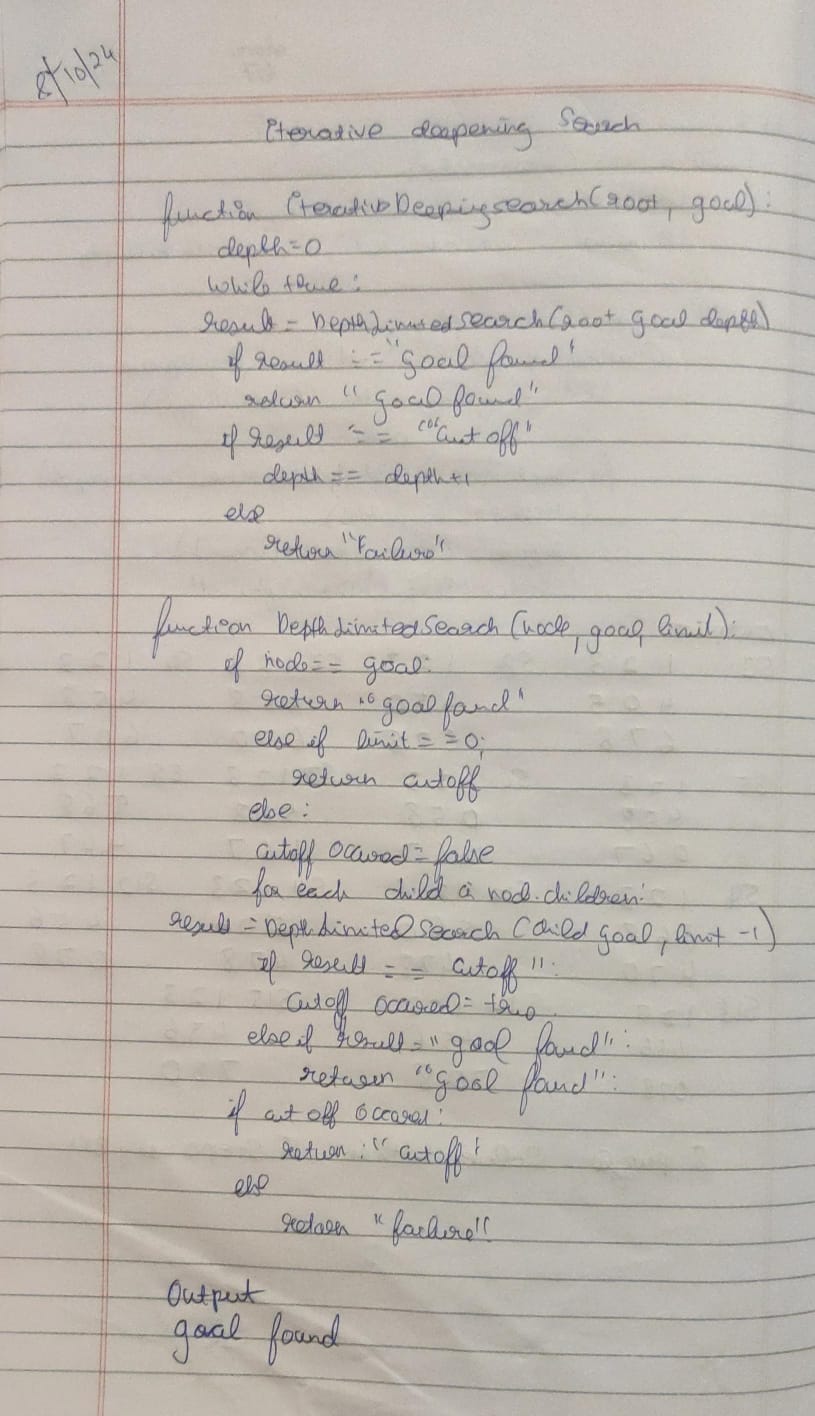 8/10/24
Iterative deepening Search
function IterativeDeepingsearch(root, goal):
depth=0
while true:
result = DepthLimitedSearch(root goal depth)
if result == "goal found"
return "goal found"
if result == "Cut off"
depth == depth+1
else
return "Failure"
function DepthLimitedSearch(node, goal, limit):
if node== goal:
return "goal found"
else if limit==0;
return cutoff
else:
cutoff occured=false
for each child in node.children:
result = DepthLimitedSearch(child goal, limit -1)
if result == cutoff":
cutoff occured= true
else if result = "goal found":
return "goal found":
if cut off occured:
return : "cutoff"
else
return "failure"
Output
goal found